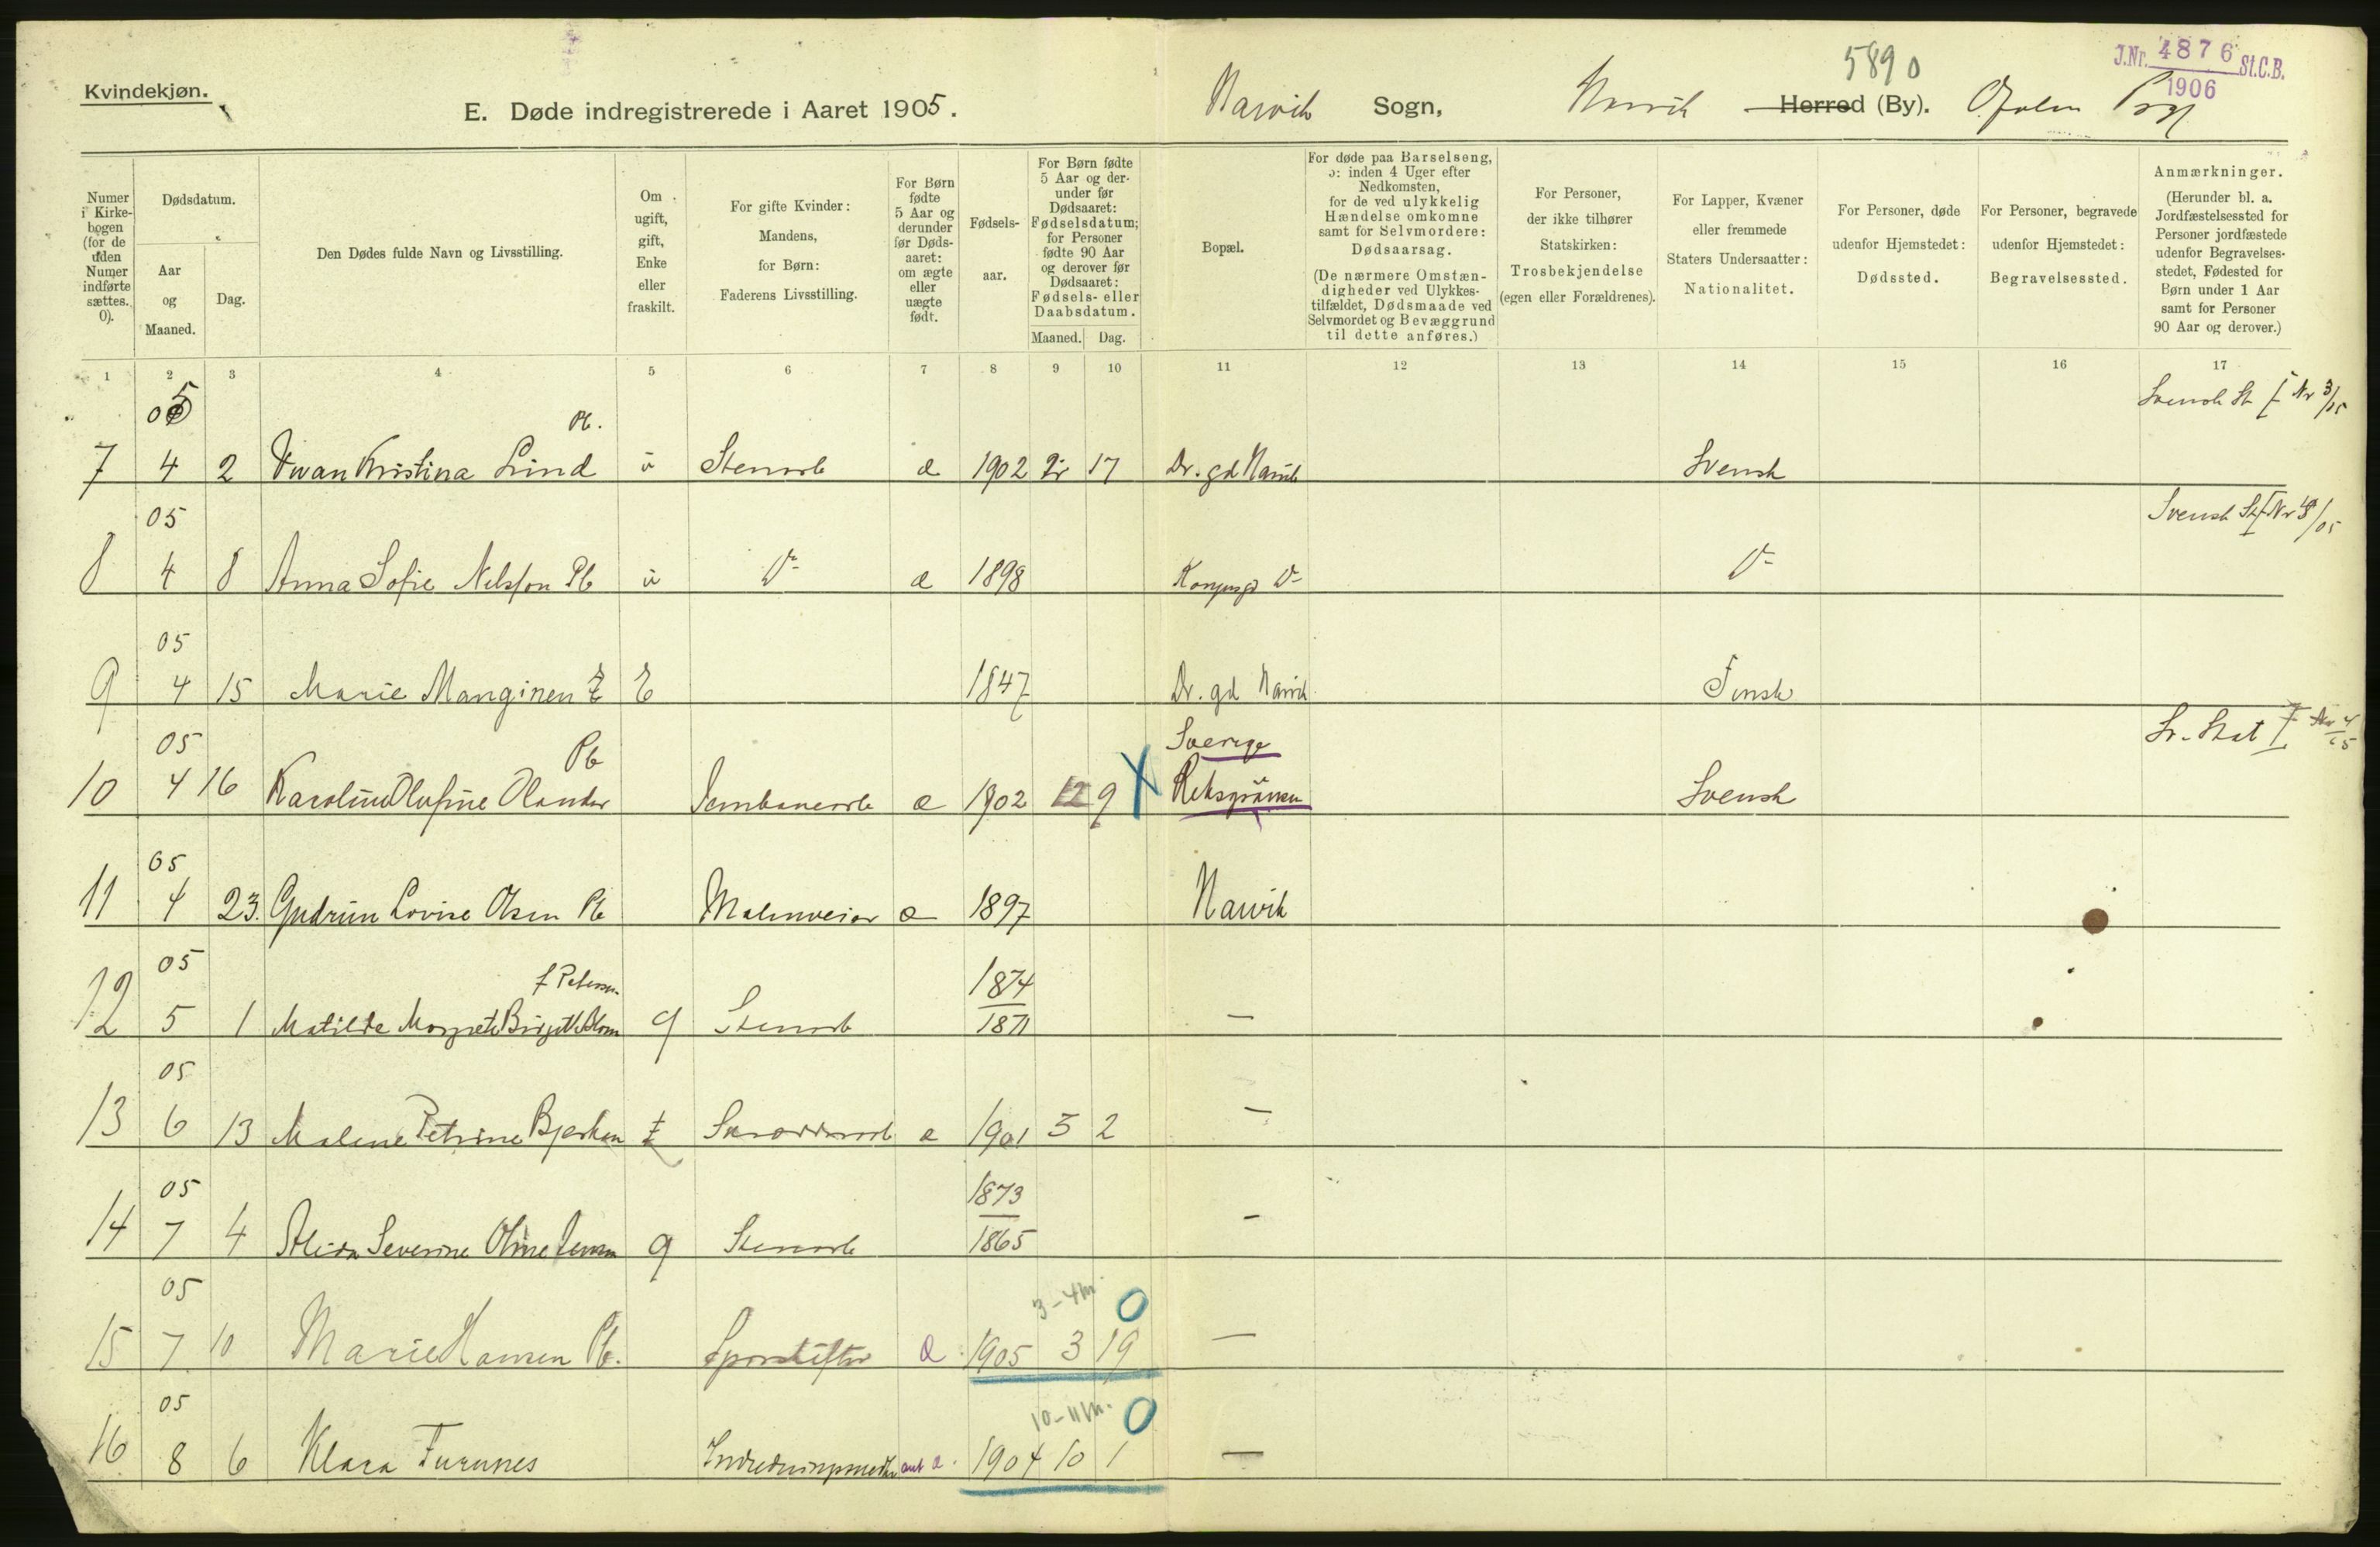 Kvindekjøn.
5890
J.Nr. 4876 St.C.B.
1906
E. Døde indregistrerede i Aaret 1905.
Narvik Sogn, Narvik Herred (By).
Numer i Kirkebogen (for de uden Numer indførte sættes. 0).
Dødsdatum.
Aar og Maaned.
Dag.
Den Dødes fulde Navn og Livsstilling.
Om ugift, gift, Enke eller fraskilt.
For gifte Kvinder: Mandens, for Børn: Faderens Livsstilling.
For Børn fødte 5 Aar og derunder før Dødsaaret: om ægte eller uægte født.
Fødselsaar.
For Børn fødte 5 Aar og derunder før Dødsaaret: Fødselsdatum; for Personer fødte 90 Aar og derover før Dødsaaret: Fødsels- eller Daabsdatum.
Maaned. Dag.
Bopæl.
For døde paa Barselseng, ɔ: inden 4 Uger efter Nedkomsten, for de ved ulykkelig Hændelse omkomne samt for Selvmordere: Dødsaarsag.
(De nærmere Omstændigheder ved Ulykkestilfældet, Dødsmaade ved Selvmordet og Bevæggrund til dette anføres.)
For Personer, der ikke tilhører Statskirken: Trosbekjendelse (egen eller Forældrenes).
For Lapper, Kvæner eller fremmede Staters Undersaatter: Nationalitet.
For Personer, døde udenfor Hjemstedet: Dødssted.
For Personer, begravede udenfor Hjemstedet: Begravelsessted.
Anmærkninger.
(Herunder bl. a. Jordfæstelsessted for Personer jordfæstede udenfor Begravelsesstedet, Fødested for Børn under 1 Aar samt for Personer 90 Aar og derover.)
1 2 3 4 5 6 7 8 9 10 11 12 13 14 15 16 17
05 Pb. Svensk St I Nr 3/05
7 4 2 Kristina Lind u Stenarb æ 1902 17 Dr. gd Narvik Svensk
05 Svensk St I Nr
8 4 8 Anna Sofie Nelsson Pb u D- æ 1898 Kongensgd D- D-
05
9 4 15 Marie Manginen E 1847 Dr. gd Narvik Finsk
05 Pb Sverige Sv. Stat I Nr 4/05
10 4 16 Karoline Olufine Olander Jernbanearb æ 1902 12 9 Riksgränsen Svensk
05
11 4 23. Gudrun Lovise Olsen Pb Malmveier æ 1897 Narvik
05 f Petersen 1874
12 5 1 Matilde Margrete Birgitte Blom g Stenarb 1871 —
05
13 6 13 Malene Petrine Bjerkan æ 1901 5 2 —
05 1873
14 7 4 Severine Oline Jensen g Stenarb 1865 —
05 3-4 m 0
15 7 10 Marie Hansen Pb. Sporskifter æ 1905 3 19 —
05 10-11 m. 0
16 8 6 Klara Furunes ant æ. 1904 10 1 —